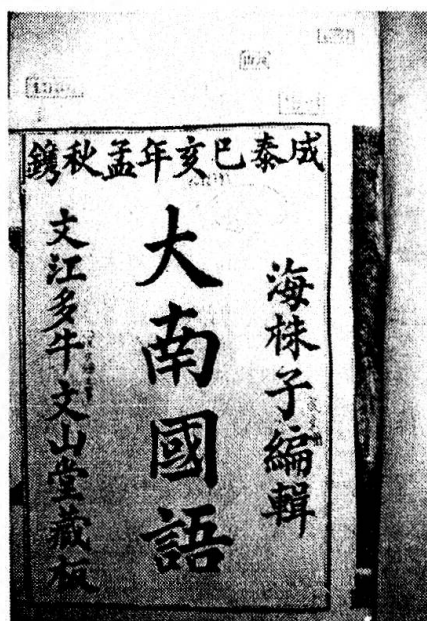 成泰巳亥年孟秋鐫
海株子編輯
大南國語
文江多牛文山堂藏板